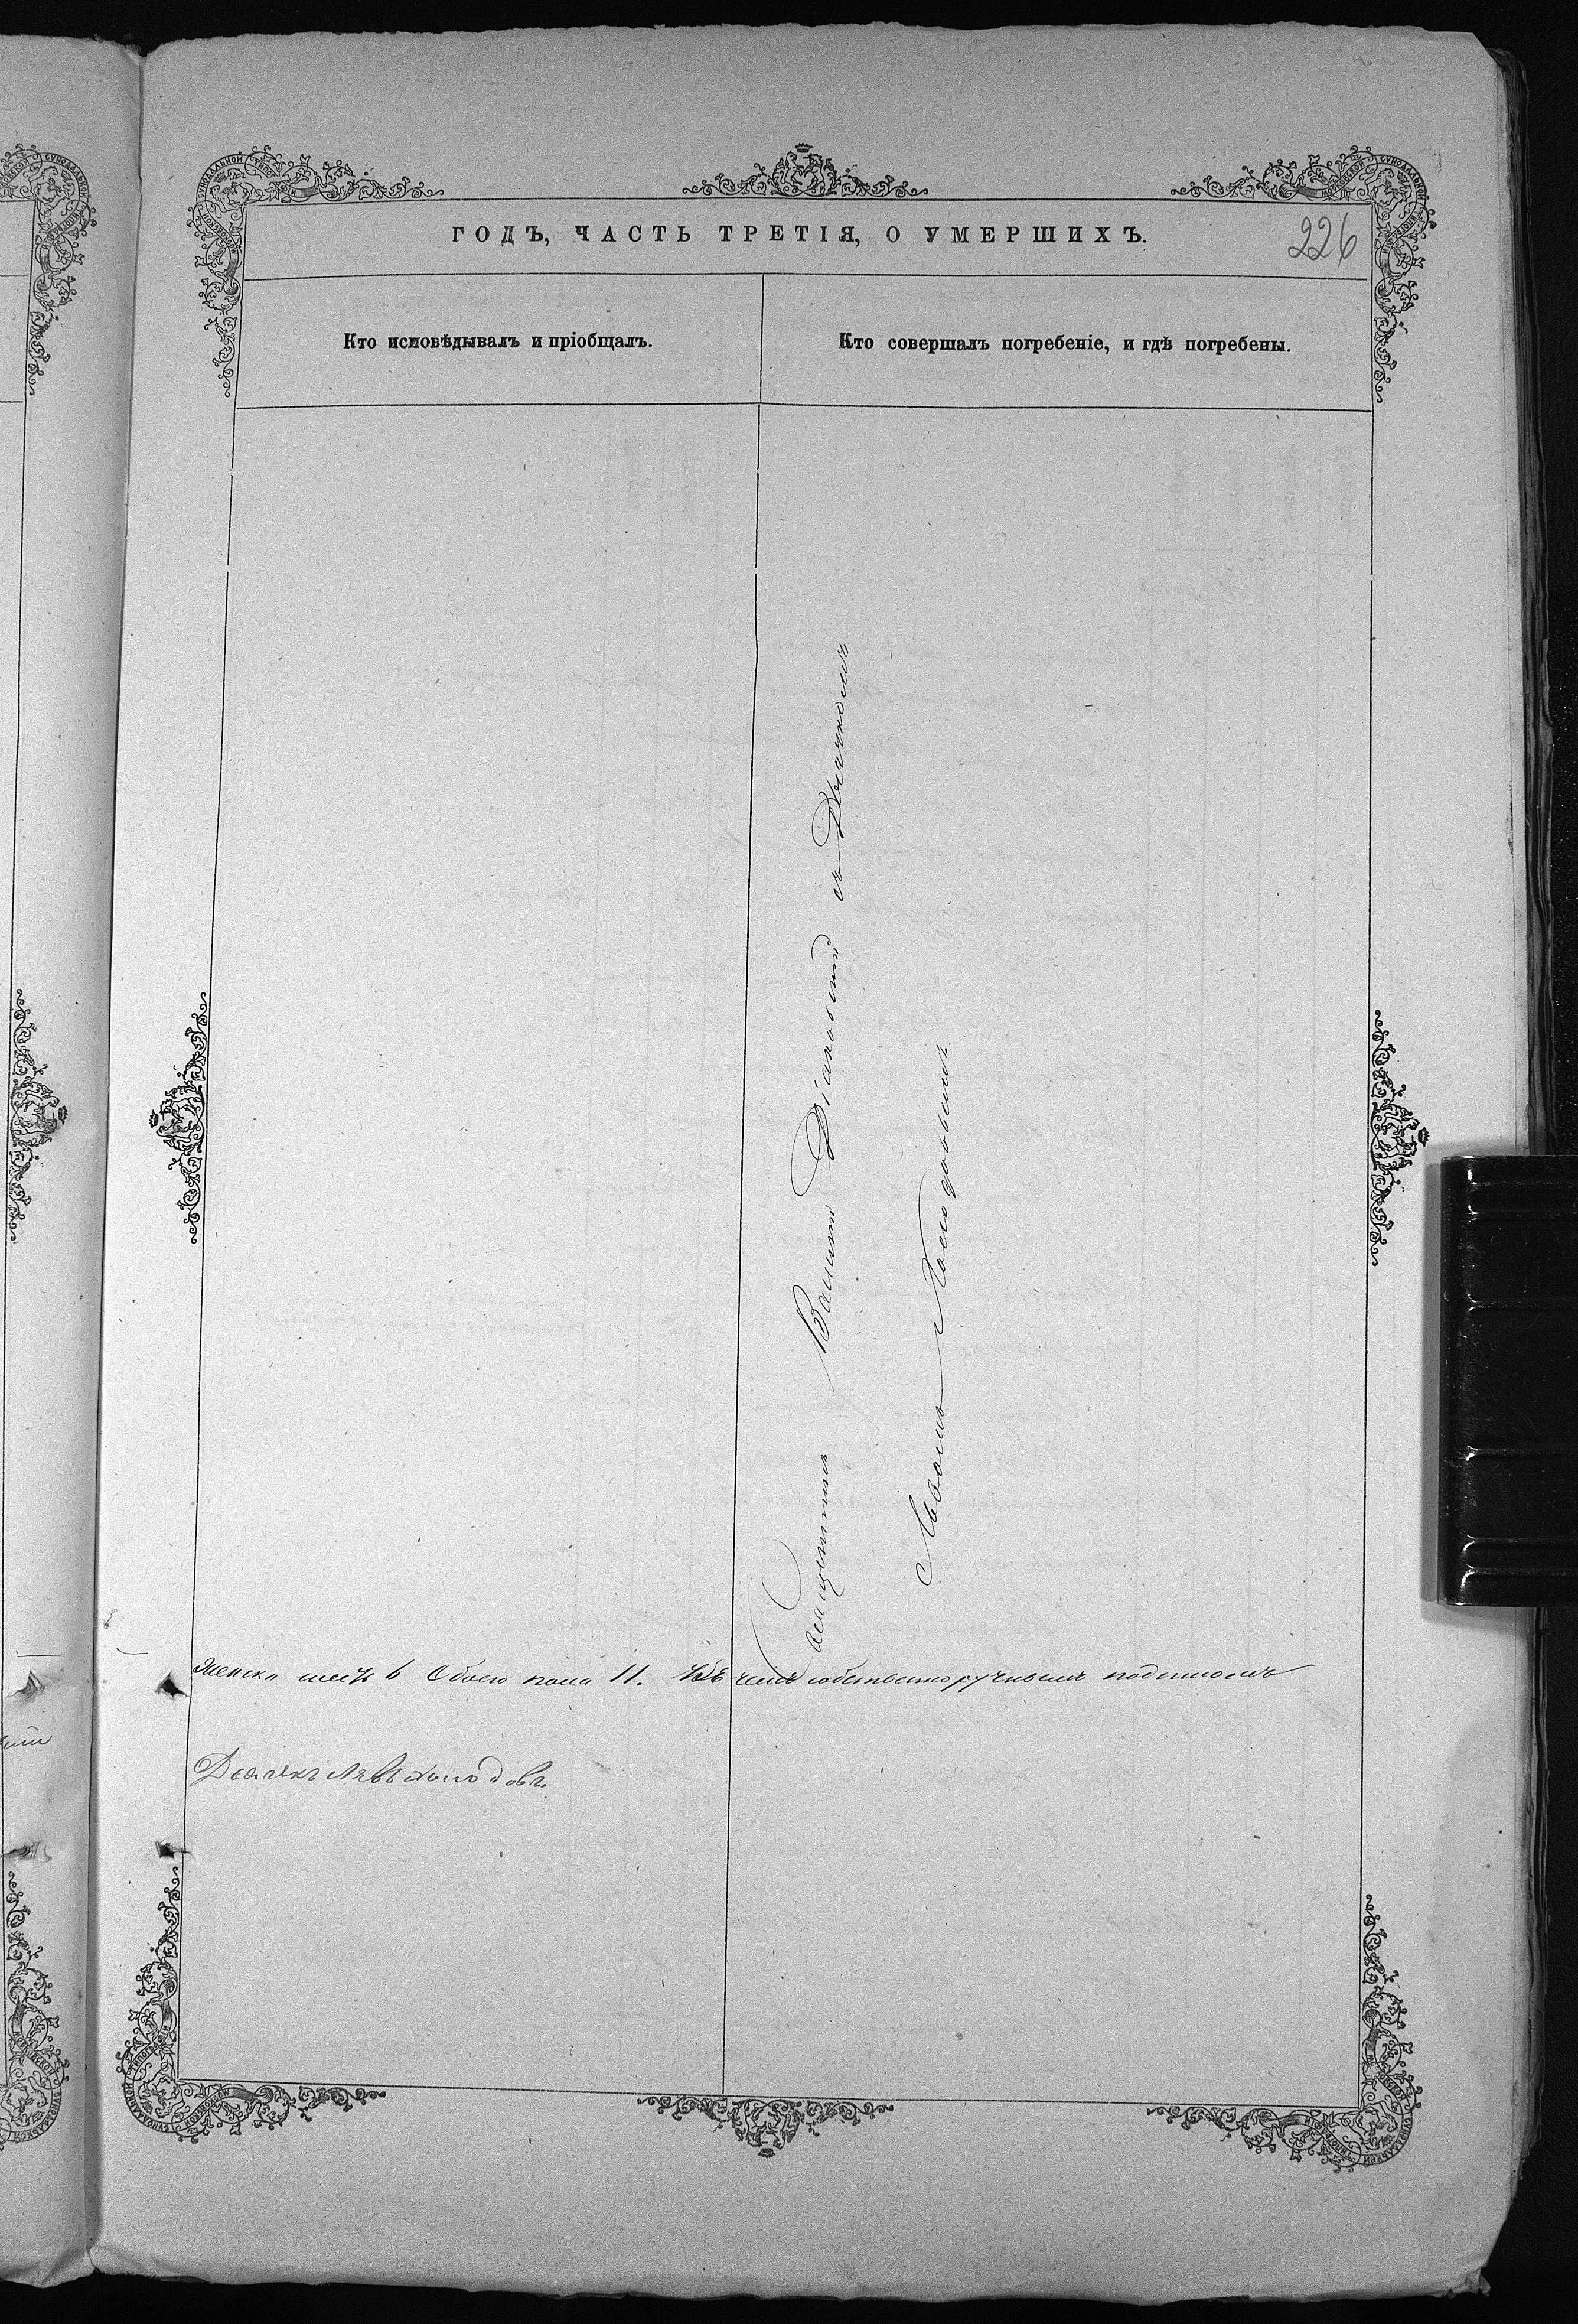 ГОДЪ, ЧАСТЬ ТРЕТІЯ, О УМЕРШИХЪ.
226
Кто исповѣдывалъ и пріобщалъ.
Кто совершалъ погребеніе, и гдѣ погребены.
Священникъ Василій Діаковскій съ Дьячкомъ
Львомъ
женска шесть 6 Обоего пола 11. въ чемъ собственноручнымъ подписомъ
Дьячекъ Левъ